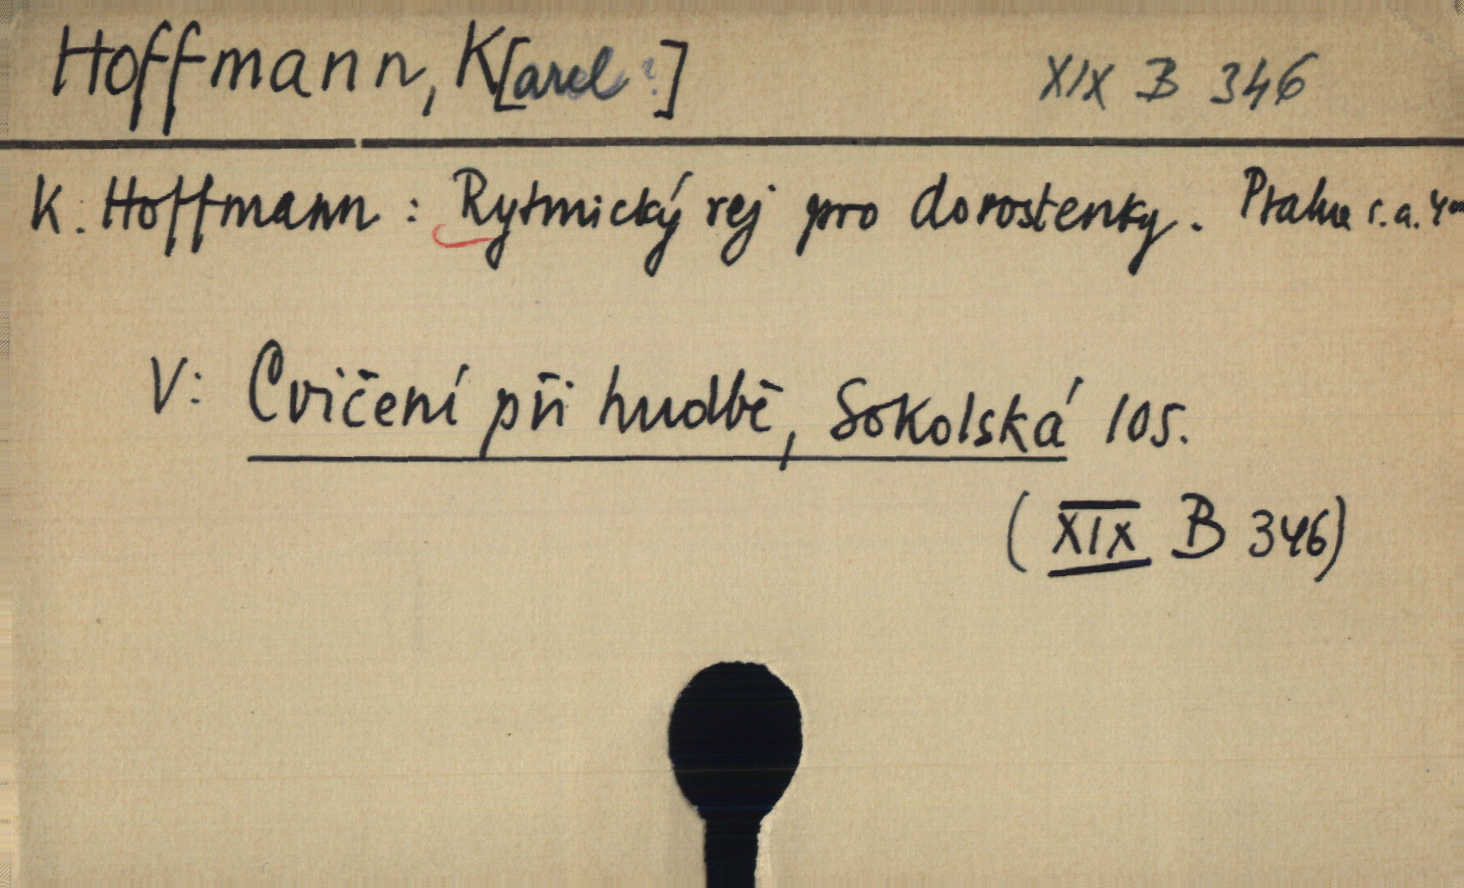 Hoffmann, K[arel?] XIX B 346
K. Hoffmann: Rytmický rej pro dorostenky. Praha s.a. 4°
V: Cvičení při hudbě, Sokolská 105.
(XIX B 346)